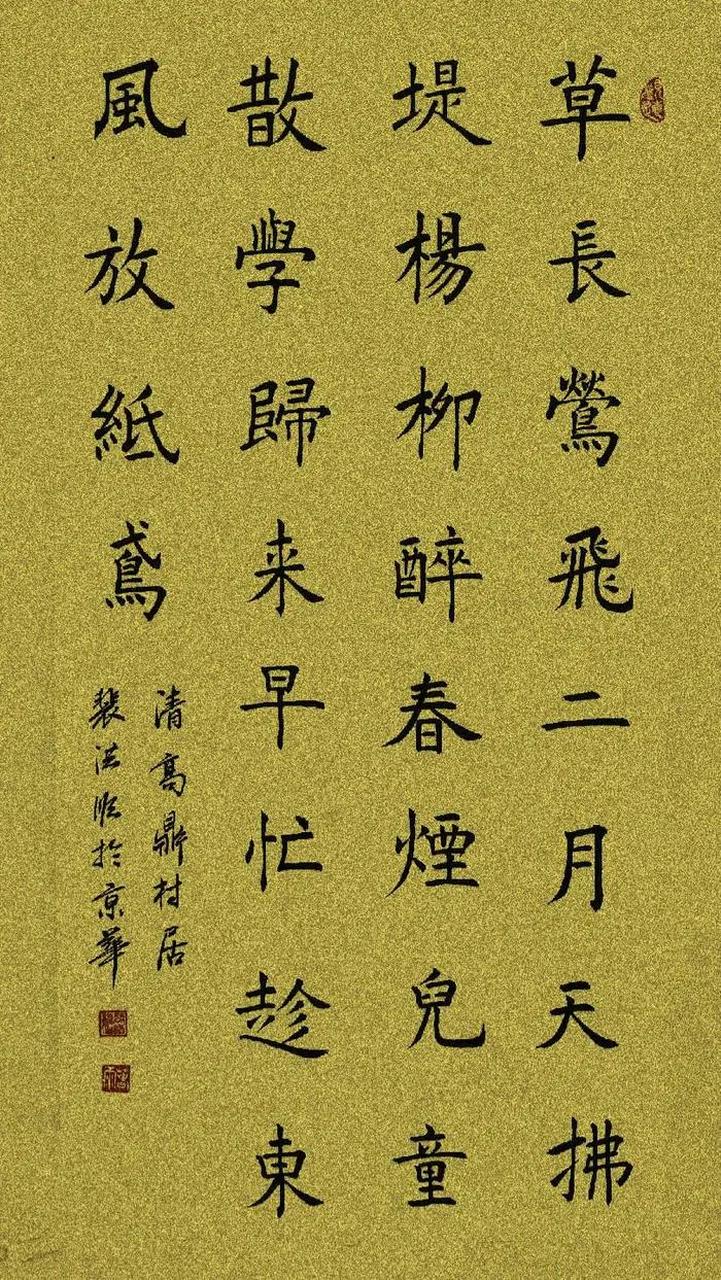 草長鶯飛二月天拂
堤楊柳醉春煙兒童
散學歸来早忙趁東
風放紙鳶
清高鼎村居
裴洪順於京華